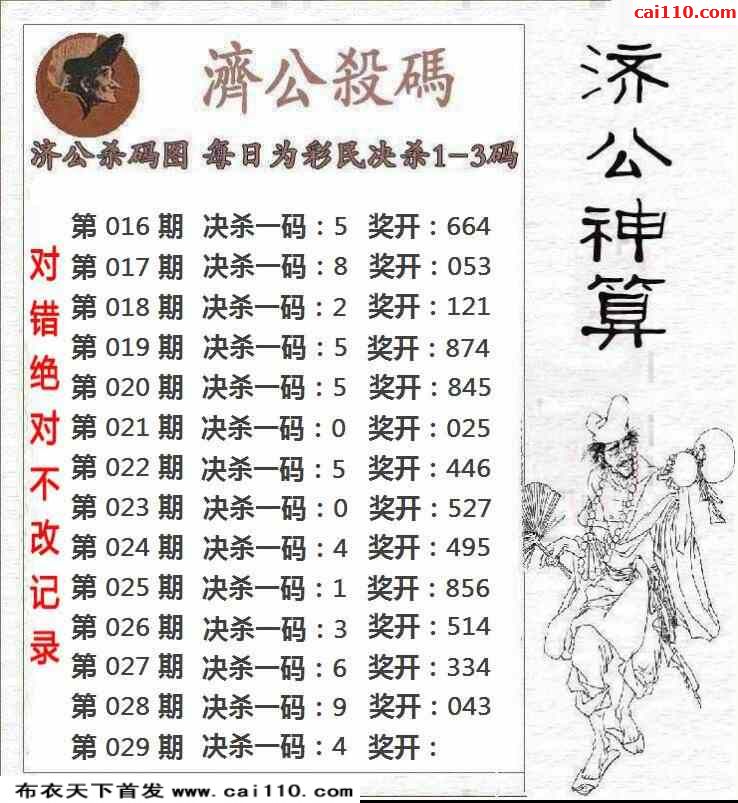 cai110.com
濟公殺碼
济公杀码图 每日为彩民决杀1-3码
第 016 期 决杀一码：5 奖开：664
第 017 期 决杀一码：8 奖开：053
第 018 期 决杀一码：2 奖开：121
第 019 期 决杀一码：5 奖开：874
第 020 期 决杀一码：5 奖开：845
第 021 期 决杀一码：0 奖开：025
第 022 期 决杀一码：5 奖开：446
第 023 期 决杀一码：0 奖开：527
第 024 期 决杀一码：4 奖开：495
第 025 期 决杀一码：1 奖开：856
第 026 期 决杀一码：3 奖开：514
第 027 期 决杀一码：6 奖开：334
第 028 期 决杀一码：9 奖开：043
第 029 期 决杀一码：4 奖开：
对错绝对不改记录
济公神算
布衣天下首发 www.cai110.com